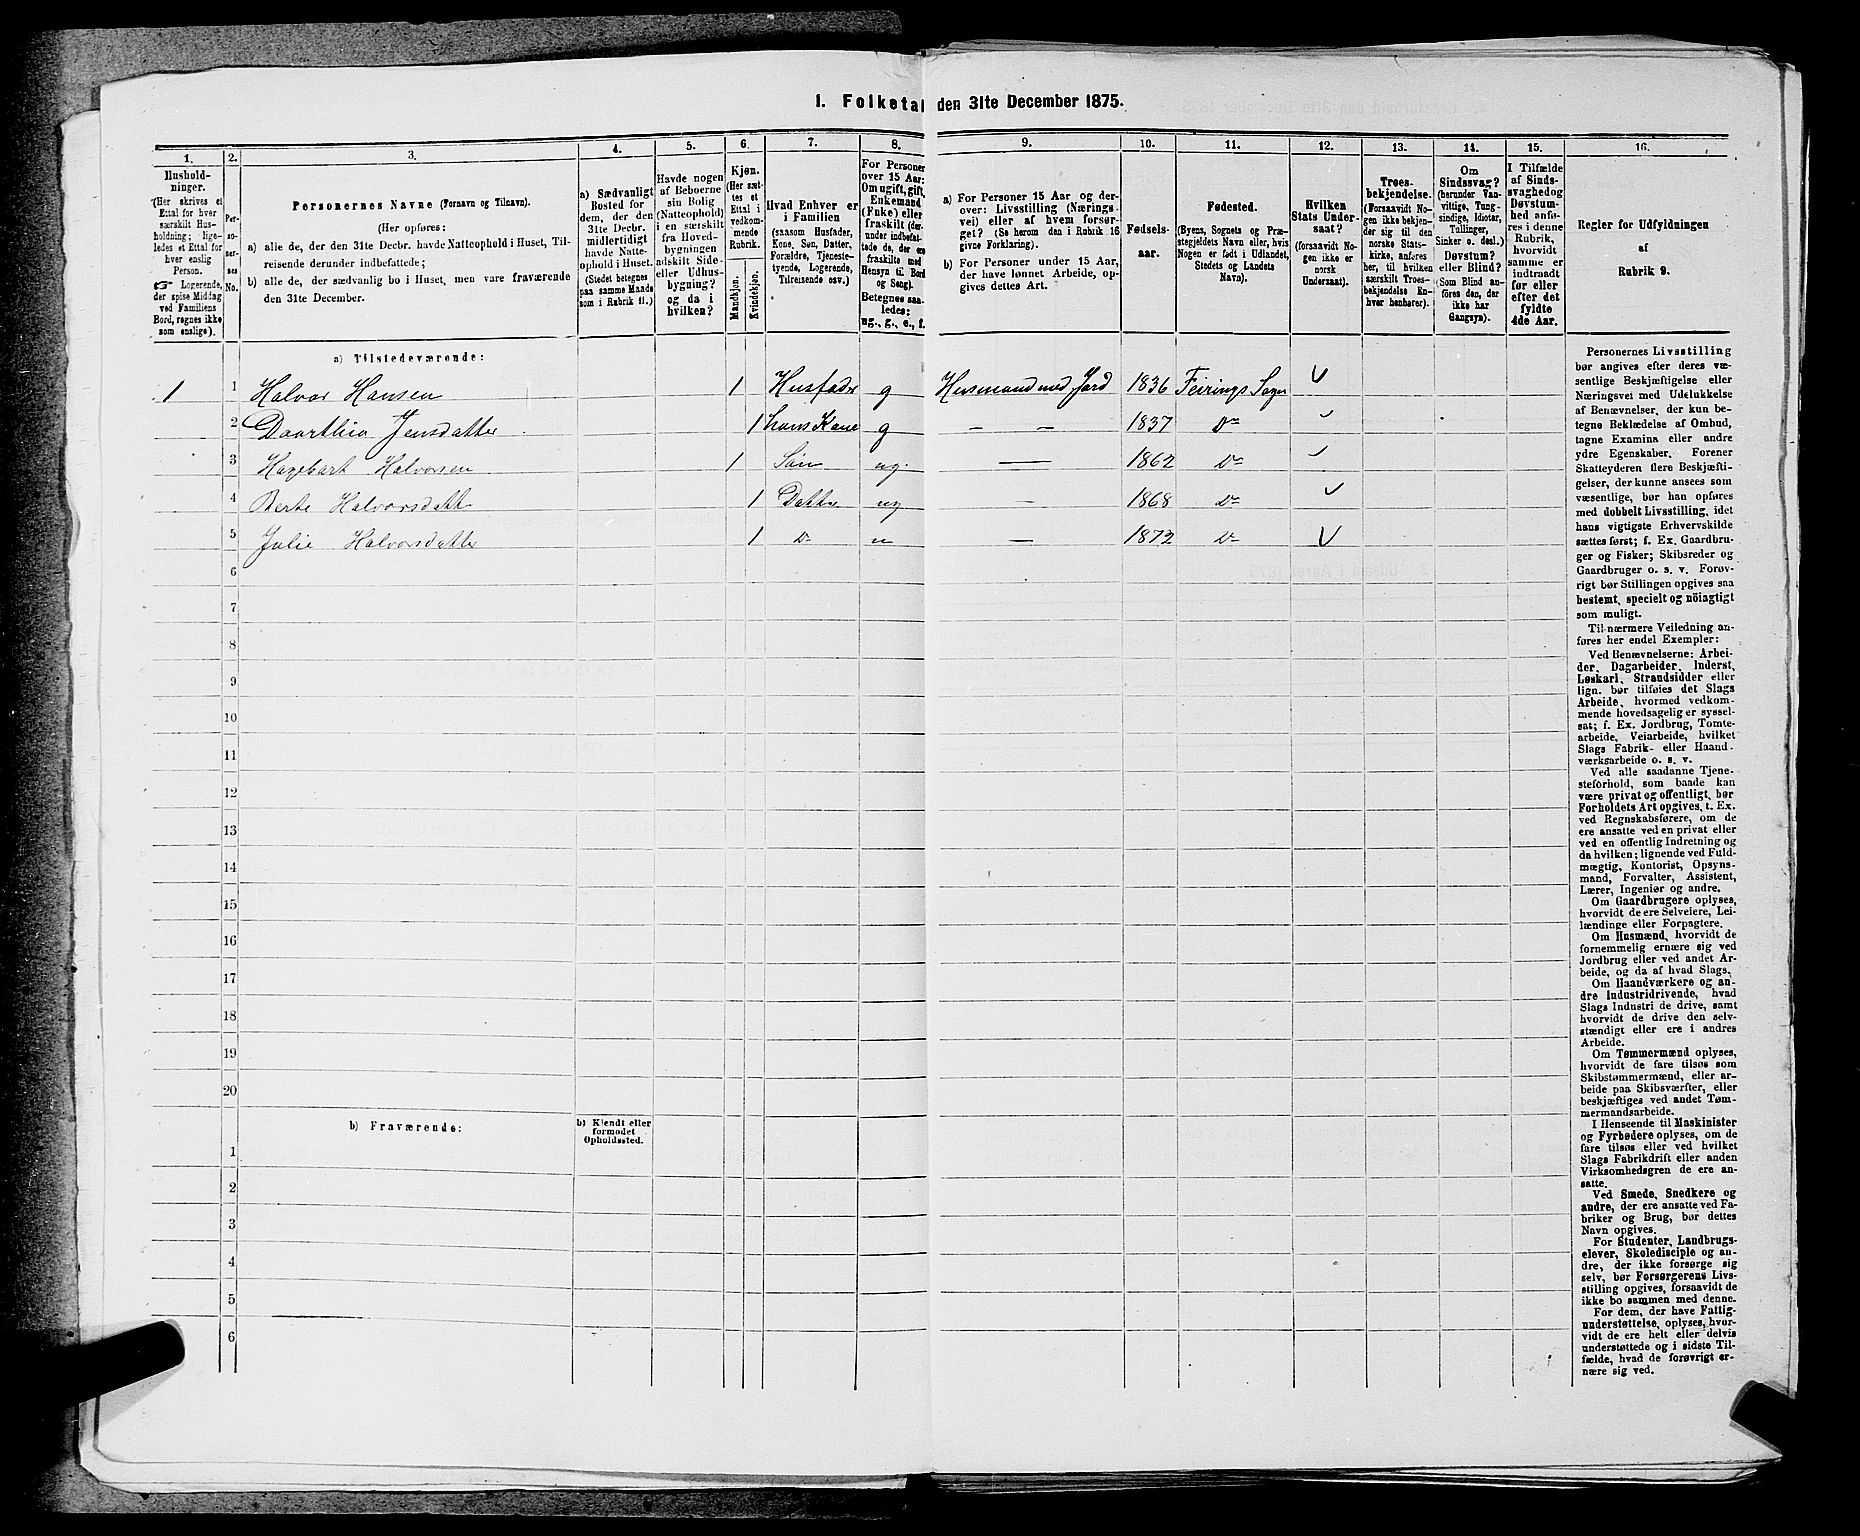 I. Folketal den 31te December 1875.
1. 2. 3. 4. 5. 6. 7. 8. 9. 10. 11. 12. 13. 14. 15. 16.
Hushold-
ninger.
(Her skrives et
Ettal for hver
særskilt Hus-
holdning; lige-
ledes et Ettal for
hver enslig
Person.
☞ Logerende,
der spise Middag
ved Familiens
Bord, regnes ikke
som enslige).
Per-
so-
ner-
nes
No.
Personernes Navne (Fornavn og Tilnavn).
(Her opføres:
a) alle de, der den 31te Decbr. havde Natteophold i Huset, Til-
reisende derunder indbefattede;
b) alle de, der sædvanlig bo i Huset, men vare fraværende
den 31te December.
a) Sædvanligt
Bosted for
dem, der den
31te Decbr.
midlertidigt
havde Natte-
ophold i Huset.
(Stedet betegnes
paa samme Maade
som i Rubrik 11.)
Havde nogen
af Beboerne
sin Bolig
(Natteophold)
i en særskilt
fra Hoved-
bygningen
adskilt Side-
eller Udhus-
bygning?
og da i
hvilken?
Kjøn.
(Her sæt-
tes et
Ettal i
vedkom-
mende
Rubrik.
Mandkjøn.
Kvindekjøn.
Hvad Enhver er
i Familien
(saasom Husfader,
Kone, Søn, Datter,
Forældre, Tjeneste-
tyende, Logerende,
Tilreisende osv.)
For Personer
over 15 Aar:
Om ugift, gift,
Enkemand
(Enke) eller
fraskilt (der-
under indbefat-
tede de, der ere
fraskilte med
Hensyn til Bord
og Seng).
Betegnes saa-
ledes:
ug., g., e., f.
a) For Personer 15 Aar og der-
over: Livsstilling (Nærings-
vei) eller af hvem forsør-
get? (Se herom den i Rubrik 16
givne Forklaring).
b) For Personer under 15 Aar,
der have lønnet Arbeide, op-
gives dettes Art.
Fødsels-
aar.
Fødested.
(Byens, Sognets og Præ-
stegjeldets Navn eller, hvis
Nogen er født i Udlandet,
Stedets og Landets
Navn).
Hvilken
Stats Under-
saat?
(forsaavidt No-
gen ikke er
norsk
Undersaat).
Troes-
bekjendelse.
(Forsaavidt No-
gen ikke bekjen-
der sig til den
norske Stats-
kirke, anføres
her, til hvilken
særskilt Troes-
bekjendelse En-
hver henhører).
Om
Sindssvag?
(herunder Van-
vittige, Tung-
sindige, Idioter,
Tullinger,
Sinker o. desl.)
Døvstum?
eller Blind?
(Som Blind an-
føres den, der
ikke har
Gangsyn).
I Tilfælde
af Sinds-
svaghed og
Døvstum-
hed anfø-
res i denne
Rubrik,
hvorvidt
samme er
indtraadt
før eller
efter det
fyldte
4de Aar.
Regler for Udfyldningen
af
Rubrik 9.
a) Tilstedeværende:
1 1 Halvor Hansen 1 Husfader g Husmand med Jord 1836 Feirings Sogn
2 Daarthea Jensdatter 1 hans Kone g — — 1837 Do
3 Hagebart Halvorsen 1 Søn ug. — 1862 Do
4 Berte Halvorsdatt 1 Datter ug — 1868 Do
5 Julie Halvorsdatter 1 Do " — 1872 Do
6
7
8
9
10
11
12
13
14
15
16
17
18
19
20
b) Fraværende:
b) Kjendt eller
formodet
Opholdssted.
1
2
3
4
5
6
Personernes Livsstilling
bør angives efter deres væ-
sentlige Beskjæftigelse eller
Næringsvei med Udelukkelse
af Benævnelser, der kun be-
tegne Beklædelse af Ombud,
tagne Examina eller andre
ydre Egenskaber. Forener
Skatteyderen flere Beskjæfti-
gelser, der kunne ansees som
væsentlige, bør han opføres
med dobbelt Livsstilling, idet
hans vigtigste Erhvervskilde
sættes først; f. Ex. Gaardbru-
ger og Fisker; Skibsreder og
Gaardbruger o. s. v. Forøv-
rigt bør Stillingen opgives saa
bestemt, specielt og nöiagtigt
som muligt.
Til nærmere Veiledning an-
føres her endel Exempler:
Ved Benævnelserne: Arbei-
der, Dagarbeider, Inderst,
Løskarl, Strandsidder eller
lign. bør tilføies det Slags
Arbeide, hvormed vedkom-
mende hovedsagelig er syssel-
sat; f. Ex. Jordbrug, Tomte-
arbeide, Veiarbeide, hvilket
Slags Fabrik- eller Haand-
værksarbeide o. s. v.
Ved alle saadanne Tjene-
steforhold, som baade kan
være privat og offentligt, bør
Forholdets Art opgives, t. Ex.
ved Regnskabsførere, om de
ere ansatte ved en privat eller
ved en offentlig Indretning og
da hvilken; lignende ved Fuld-
mægtig, Kontorist, Opsyns-
mand, Forvalter, Assistent,
Lærer, Ingeniør og andre.
Om Gaardbrugere oplyses,
hvorvidt de ere Selveiere, Lei-
lændinge eller Forpagtere.
Om Husmænd, hvorvidt de
fornemmelig ernære sig ved
Jordbrug eller ved andet Ar-
beide, og da af hvad Slags.
Om Haandværkere og an-
dre Industridrivende, hvad
Slags Industri de drive, samt
hvorvidt de drive den selv-
stændigt eller ere i andres
Arbeide.
Om Tømmermænd oplyses,
hvorvidt de fare tilsøs som
Skibstømmermænd, eller ar-
beide paa Skibsværfter, eller
beskjæftiges ved andet Tøm-
mermandsarbeide.
I Henseende til Maskinister
og Fyrbødere oplyses, om de
fare tilsøs eller ved hvilket
Slags Fabrikdrift eller anden
Virksomhedsgren de ere an-
satte.
Ved Smede, Snedkere og
andre, der ere ansatte ved Fa-
briker og Brug, bør dettes
Navn opgives.
For Studenter, Landbrugs-
elever, Skoledisciple og an-
dre, der ikke forsørge sig
selv, bør Forsørgerens Livs-
stilling opgives, forsaavidt de
ikke bo sammen med denne.
For dem, der have Fattig-
understøttelse, oplyses, hvor-
vidt de ere helt eller delvis
understøttede og i sidste Til-
fælde, hvad de forøvrigt er-
nære sig ved.